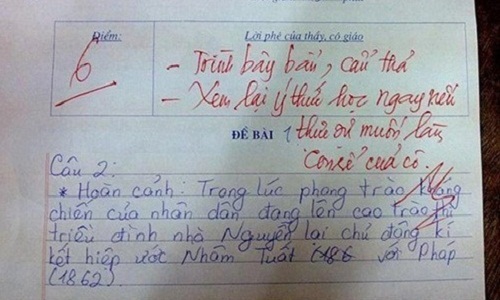 Điểm:
Lời phê của thầy, cô giáo
6
- Trình bày bẩn, cẩu thả
- Xem lại ý thức học ngay nếu
thực sự muốn làm
"con rể" của cô.
ĐỀ BÀI
Câu 2:
* Hoàn cảnh: Trong lúc phong trào kháng
chiến của nhân dân đang lên cao trào thì
triều đình nhà Nguyễn lại chủ động kí
kết hiệp ước Nhâm Tuất (186 với Pháp
(1862).